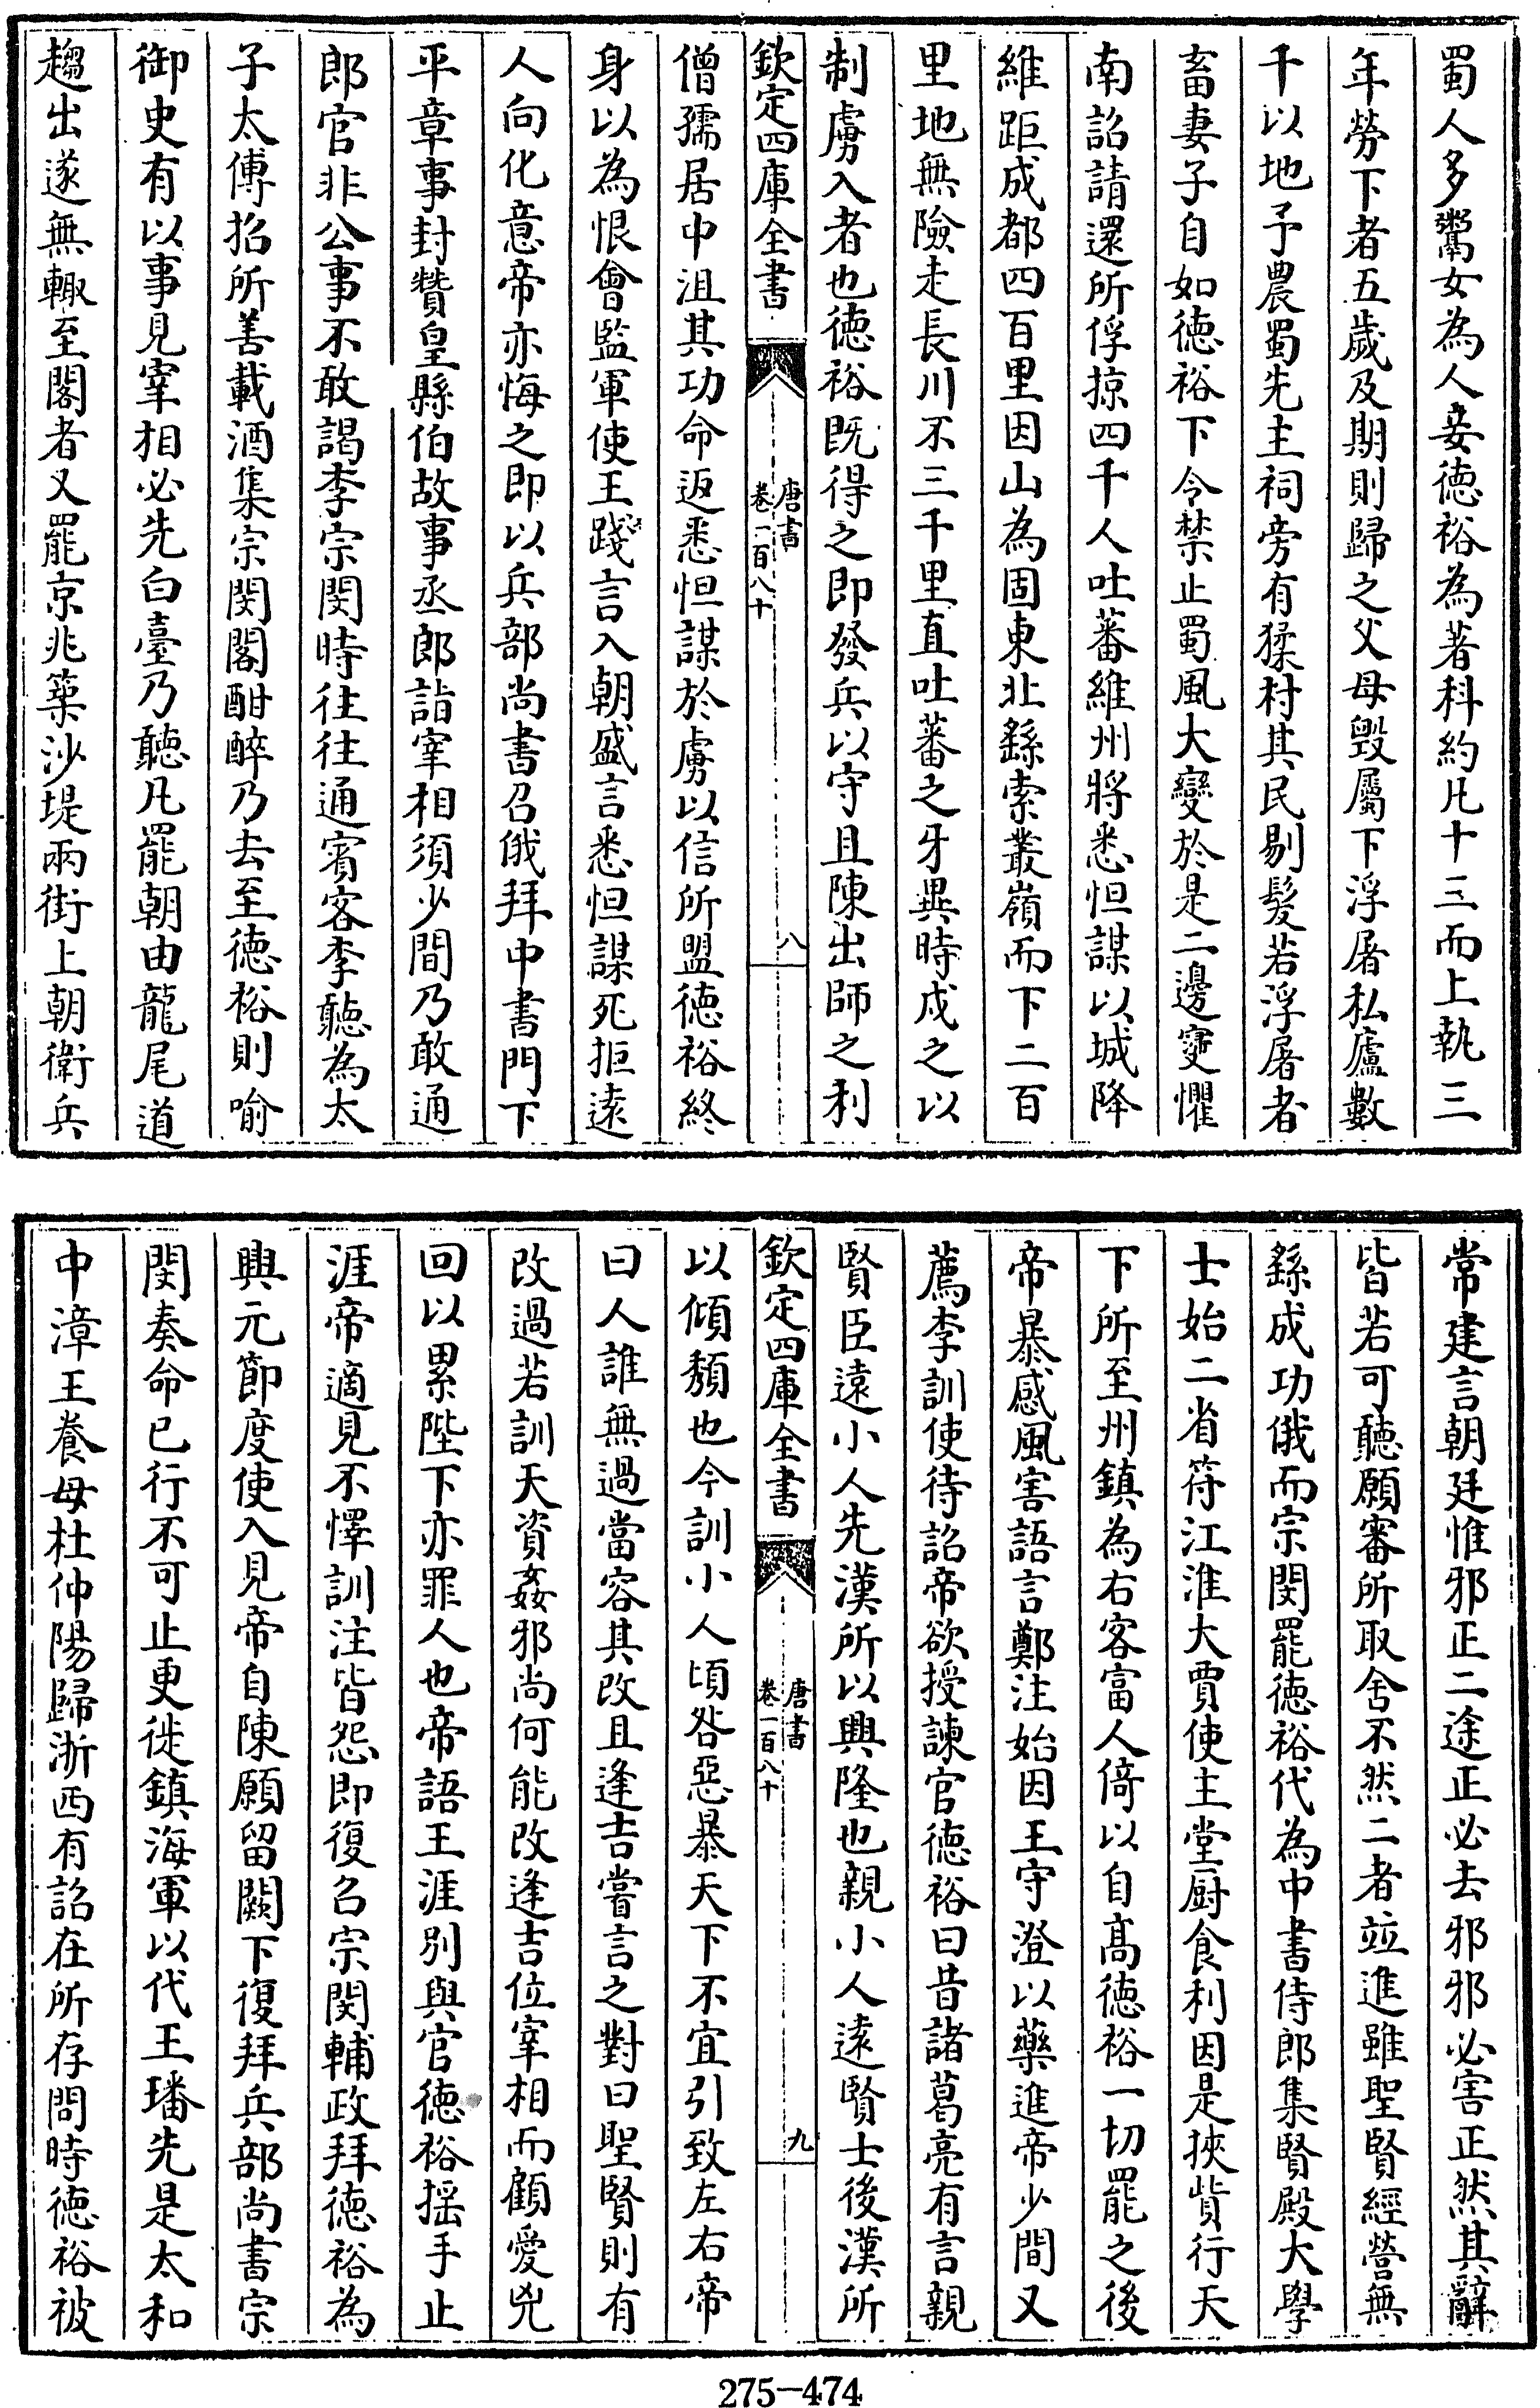 蜀人多鬻女為人妾德裕為著科約凡十三而上執三
年勞下者五歲及期則歸之父母毁屬下浮屠私廬數
千以地予農蜀先主祠旁有猱村其民剔髮若浮屠者
畜妻子自如德裕下令禁止蜀風大變於是二邊寖懼
南詔請還所俘掠四千人吐蕃維州將悉怛謀以城降
維距成都四百里因山為固東北繇索叢嶺而下二百
里地無險走長川不三千里直吐蕃之牙異時戍之以
制虜入者也德裕既得之即發兵以守且陳出師之利
欽定四庫全書
唐書
卷一百八十
八
僧孺居中沮其功命返悉怛謀於虜以信所盟德裕終
身以為恨會監軍使王踐言入朝盛言悉怛謀死拒遠
人向化意帝亦悔之即以兵部尚書召俄拜中書門下
平章事封贊皇縣伯故事丞郎詣宰相須少間乃敢通
郎官非公事不敢謁李宗閔時往往通賓客李聽為太
子太傅招所善載酒集宗閔閣酣醉乃去至德裕則喻
御史有以事見宰相必先白臺乃聽凡罷朝由龍尾道
趨出遂無輙至閣者又罷京兆築沙堤兩街上朝衛兵
常建言朝廷惟邪正二途正必去邪邪必害正然其辭
皆若可聽願審所取舍不然二者竝進雖聖賢經營無
繇成功俄而宗閔罷德裕代為中書侍郎集賢殿大學
士始二省符江淮大賈使主堂厨食利因是挾貲行天
下所至州鎮為右客富人倚以自高德裕一切罷之後
帝暴感風害語言鄭注始因王守澄以藥進帝少間又
薦李訓使待詔帝欲授諫官德裕曰昔諸葛亮有言親
賢臣遠小人先漢所以興隆也親小人遠賢士後漢所
欽定四庫全書
唐書
卷一百八十
九
以傾頹也今訓小人頃咎惡暴天下不宜引致左右帝
曰人誰無過當容其改且逢吉嘗言之對曰聖賢則有
改過若訓天資姦邪尚何能改逢吉位宰相而顧愛兇
回以累陛下亦罪人也帝語王涯别與官德裕揺手止
涯帝適見不懌訓注皆怨即復召宗閔輔政拜德裕為
興元節度使入見帝自陳願留闕下復拜兵部尚書宗
閔奏命已行不可止更徙鎮海軍以代王璠先是太和
中漳王養母杜仲陽歸浙西有詔在所存問時德裕被
275-474